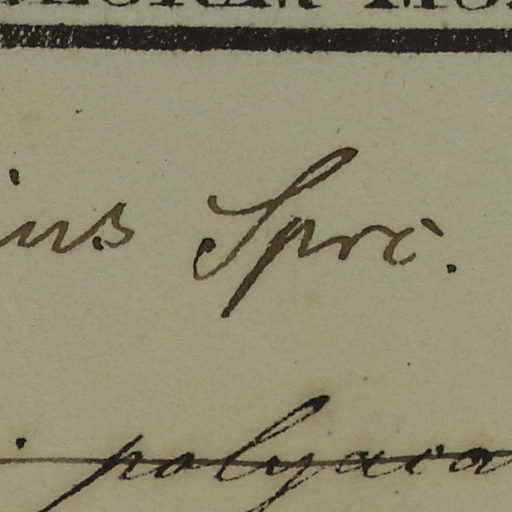 ius Spre.
polyaca